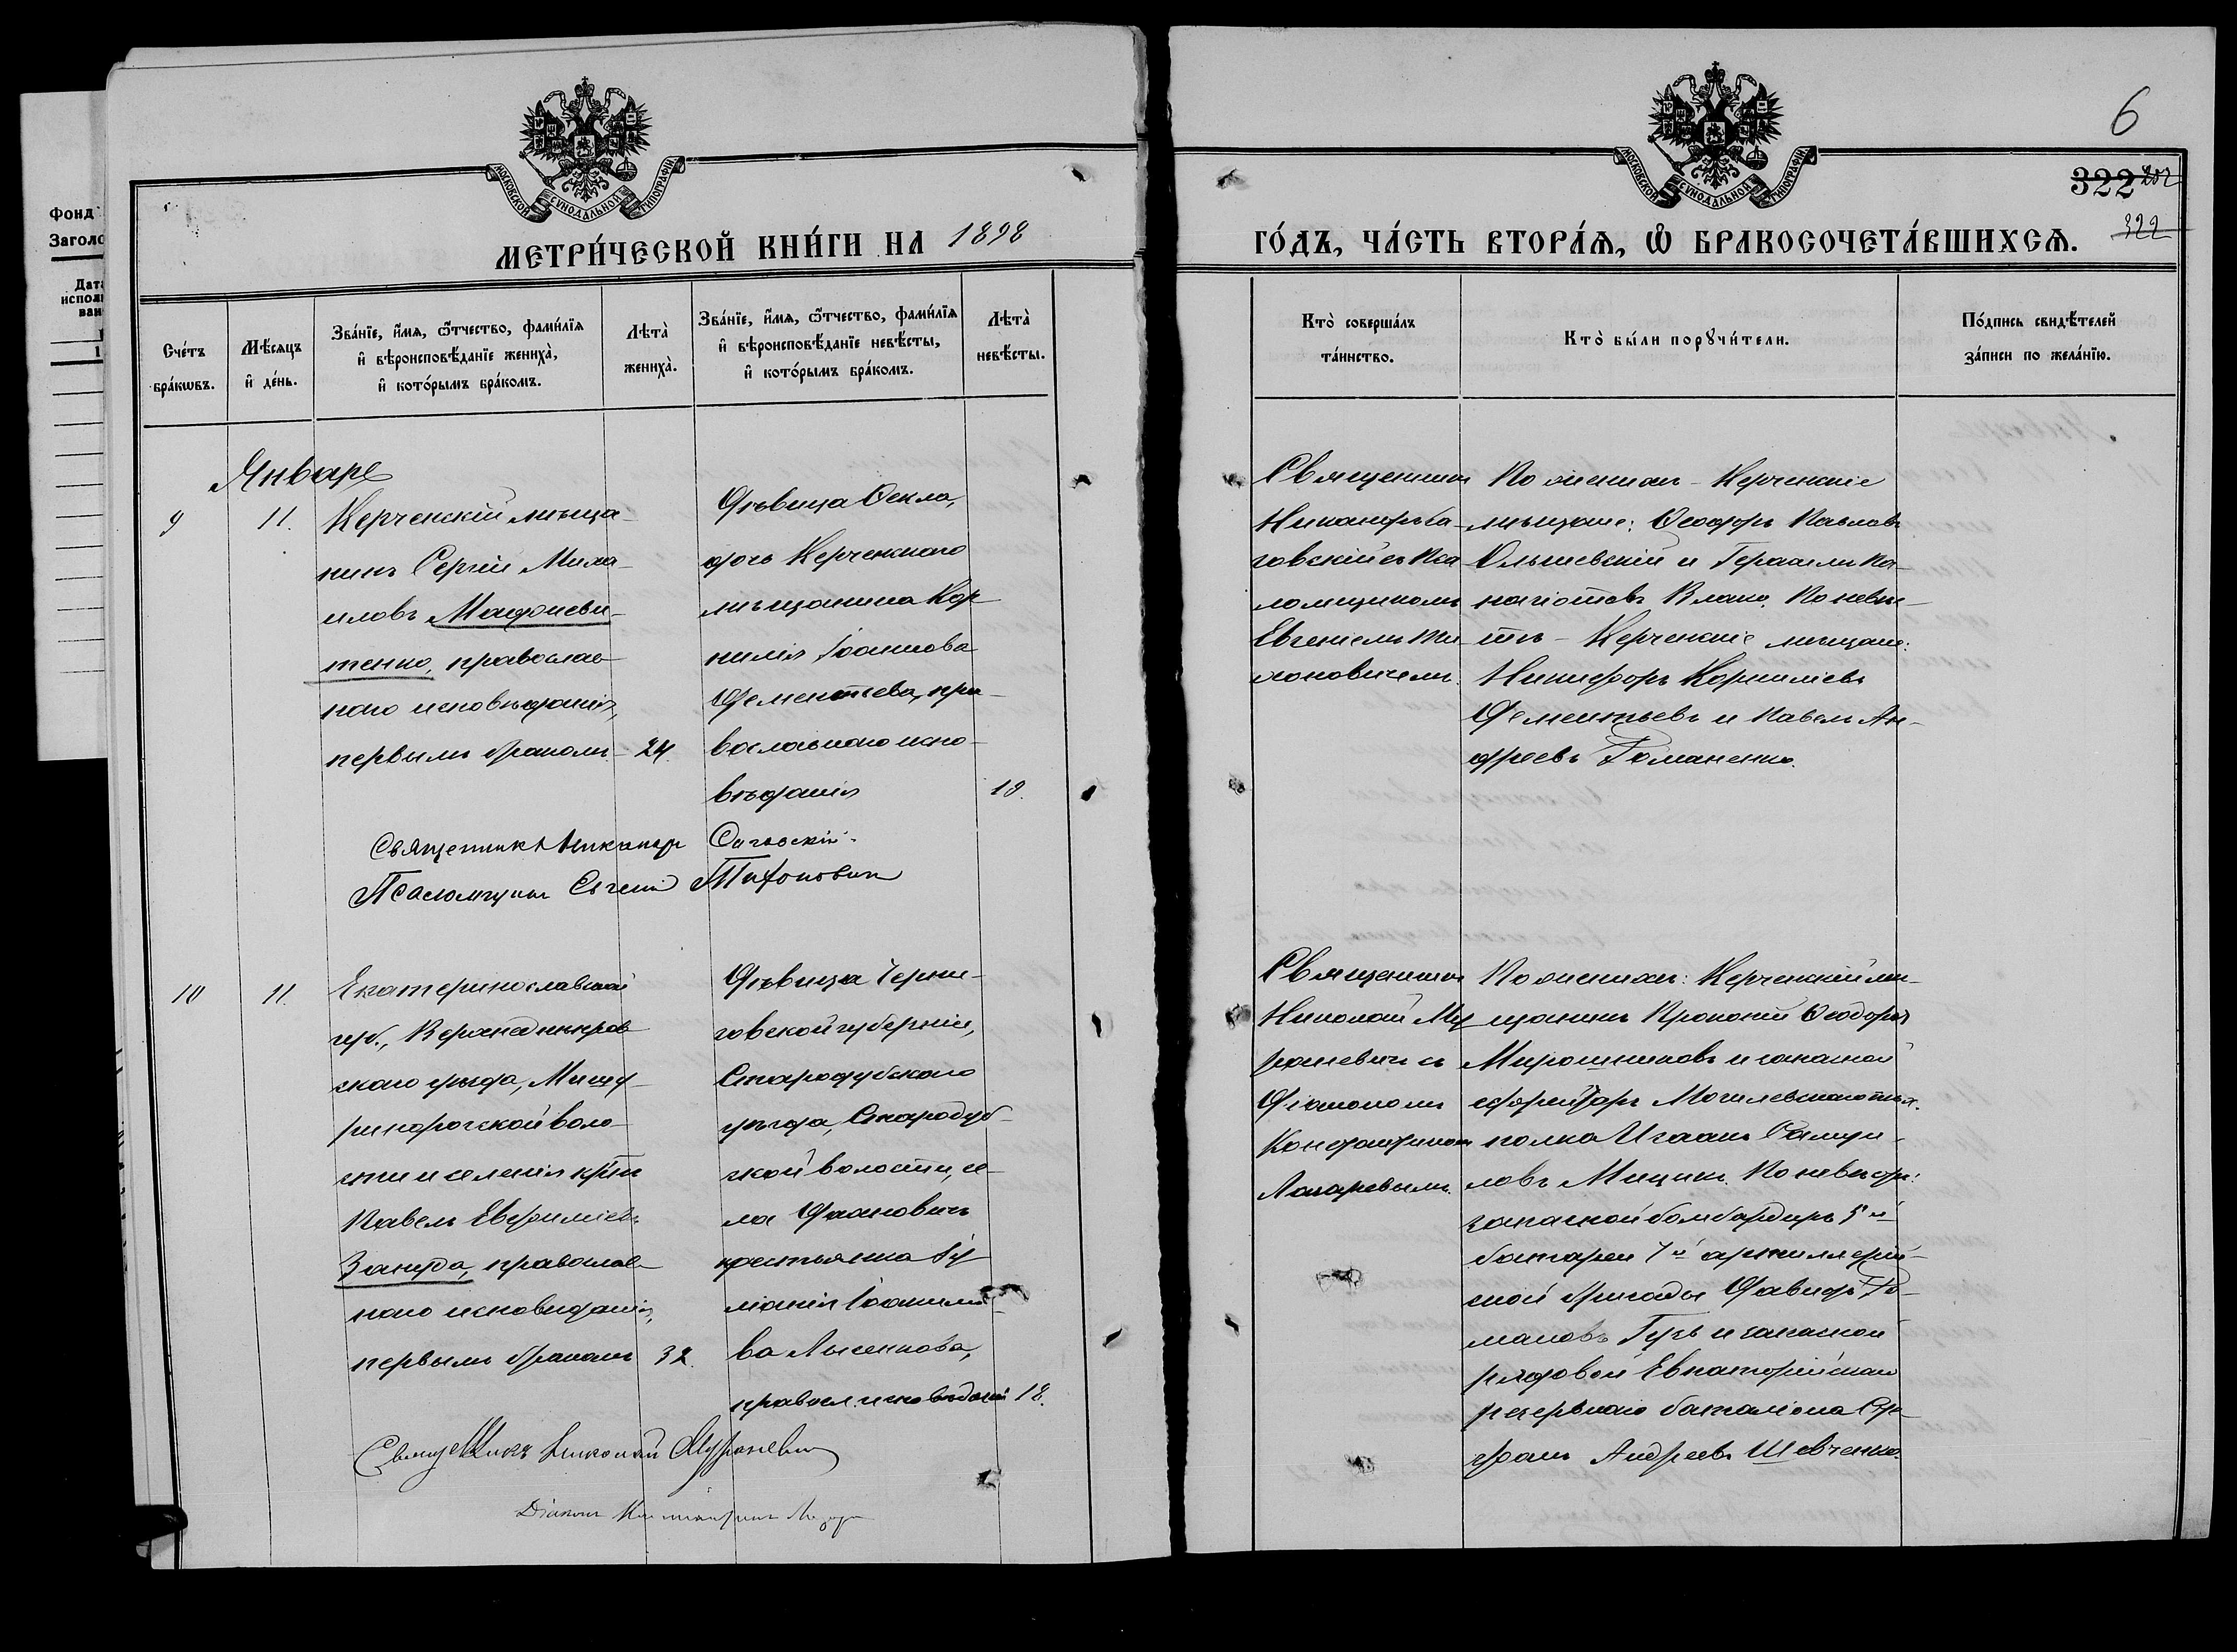 Фонд
Заголо
Дата
исполь
ван
6
322 202
322
МОСКОВСКОЙ СѴНОДАЛЬНОЙ ТИПОГРАФІИ
МОСКОВСКОЙ СѴНОДАЛЬНОЙ ТИПОГРАФІИ
МЕТРИ́ЧЕСКОЙ КНИ́ГИ НА 1898
ГО́ДЪ, ЧА́СТЬ ВТОРА́Я, Ѿ БРАКОСОЧЕТА́ВШИХСЯ.
Сче́тъ
бра́кѡвъ.
Мѣ́сяцъ
и҆ де́нь.
Зва́нїе, и҆́мя, ѻ҆́тчество, фами́лїя
и҆ вѣроисповѣ́данїе жениха̀,
и҆ кото́рымъ бра́комъ.
Лѣта̀
жениха̀.
Зва́нїе, и҆́мя, ѻ҆́тчество, фами́лїя
и҆ вѣроисповѣ́данїе невѣ́сты,
и҆ кото́рымъ бра́комъ.
Лѣта̀
невѣ́сты.
Кто̀ соверша́лъ
та́инство.
Кто̀ бы́ли порꙋчи́тели.
По́дпись свидѣ́телей
за́писи по жела́нїю.
Январь
9
11.
Керченскій мѣща-
нинъ Сергій Миха-
иловъ
тенко, православ-
наго исповѣданія,
первымъ бракомъ
24.
Дѣвица Ѳекла,
дочь Керченскаго
мѣщанина Кор-
нилія Іоаннова
Дементьева, пра-
вославнаго испо-
вѣданія
19.
Священникъ
Никаноръ Са-
говскій съ Пса-
ломщикомъ
Евгеніемъ Ти-
хоновичемъ.
По женихѣ - Керченскіе
мѣщане: Ѳеодоръ Павловъ
Ольшевскій и Герасимъ Па-
наіотовъ Влахо. По невѣс-
тѣ - Керченскіе мѣщане:
Никифоръ Корниліевъ
Дементьевъ и Павелъ Ан-
дреевъ Романенко.
Священникъ Никаноръ Саговскій.
Псаломщикъ Евгеній Тихонович
10
11.
Екатеринославской
губ., Верхнеднѣпров
скаго уѣзда, Мишу-
ринорогской воло-
сти и селенія кр-нъ
Павелъ Евфиміевъ
Закуда, православ-
наго исповѣданія,
первымъ бракомъ
32.
Дѣвица Черни-
говской губерніи,
Стародубскаго
уѣзда, Стародуб-
ской волости, се-
ла
крестьянка Іу-
ліанія Іоакимо-
ва Лысенкова,
правосл. исповѣданія
18.
Священникъ
Николай Му-
раневичъ съ
Діакономъ
Константиномъ
Лазаревымъ.
По женихѣ: Керченскій мѣ-
щанинъ Прокопій Ѳеодоровъ
Мирошниковъ и запасной
ефрейторъ Могилевскаго пѣх.
полка Исаакъ Самуи-
ловъ Мицикъ. По невѣстѣ:
запасной бомбардиръ 5й
батареи 7й артиллерій-
ской бригады Давидъ Ро-
мановъ Гузь и запасной
рядовой Евпаторійскаго
резервнаго баталіона
Андреевъ Шевченко.
Священникъ Николай Мураневичъ
Діаконъ Константинъ Лазаревъ